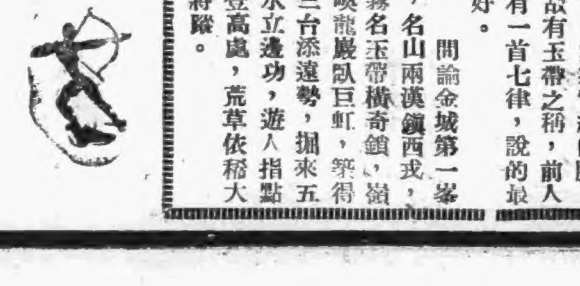 故有玉帶之稱，前人
有一首七律，說的最
好。
間論金城第一峯
，名山兩漢鎮西戎，
霧名玉帶橫奇鎖，嶺
喚龍巖臥巨虹，築得
三台添遠勢，掘來五
水立邊功，遊人指點
登高處，荒草依稀大
將蹤。